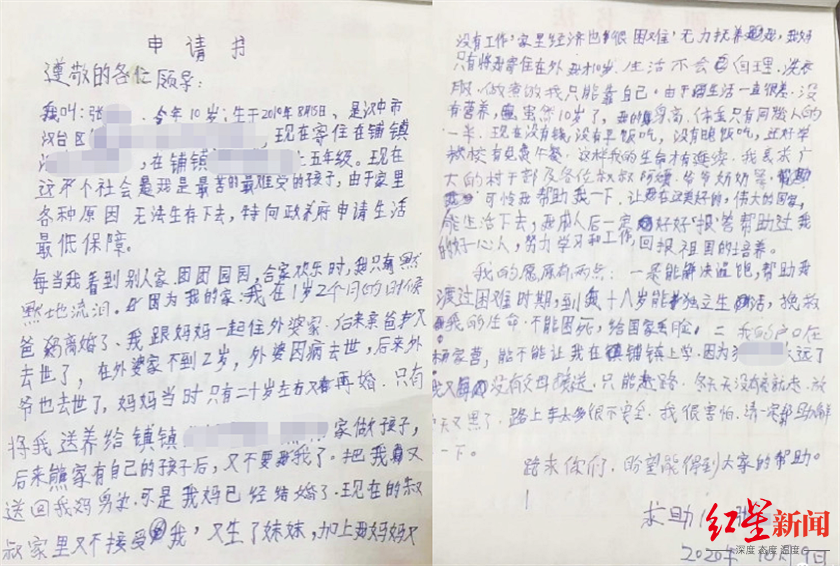 申请书
尊敬的各位领导:
我叫:张 今年10岁;生于2010年8月15、是汉中市
汉台区 ,现在寄住在铺镇
,在铺镇 上五年级。现在
这个社会是我是最苦的最难受的孩子,由于家里
各种原因 无法生存下去,特向政府申请生活
最低保障。
每当我看到别人家团团园园,合家欢乐时,我只有默
默地流泪。因为我的家:我在1岁2个月的时候
爸妈离婚了、我跟妈妈一起住外婆家,后来亲爸
去世了,在外婆家不到2岁,外婆因病去世,后来外
爷也去世了,妈妈当时只有二十岁左右又再婚.只有
将我送养给镇镇 家做孩子,
后来熊家有自己的孩子后,又不要我了。把我又
送回我妈身边.可是我妈已经结婚了.现在的叔
叔家里又不接受我,又生了妹妹,加上我妈妈又
没有工作,家里经济也很困难,无力抚养我,我妈
只有将我寄住在外,我才10岁.生活不会自理.洗衣
服.做煮放我只能靠自己.由于生活一直很差.没
有营养,虽然10岁了,我的身高,体重只有同龄人的
一半.现在没有钱,没有早饭吃,没有晚饭吃,还好学
校有免费午餐.这样我的生命才有延续.我恳求广
大的村干部及各位叔叔阿姨、爷爷奶奶
可怜我帮助我一下.让我在这美好的,伟大的国家,
能生活下去,我成人后一定好好报答帮助过我
的好心人,努力学习和工作,回报祖国的培养。
我的愿原有两点:一是能解决温饱,帮助我
渡过困难时期,到我十八岁能独立生活,挽救
我的生命.不能困死,给国家丢脸.二我的户口在
杨家营,能不能让我在铺镇上学.因为 太远了
我又没有父母接送.只能赶路.冬天天没有亮就走.放
天又黑了.路上车太多很不安全.我很害怕.请一定帮助
一下。
跪求你们.盼望能得到大家的帮助。
求助人 张
2020年10月 日
红星新闻
深度 态度 温度